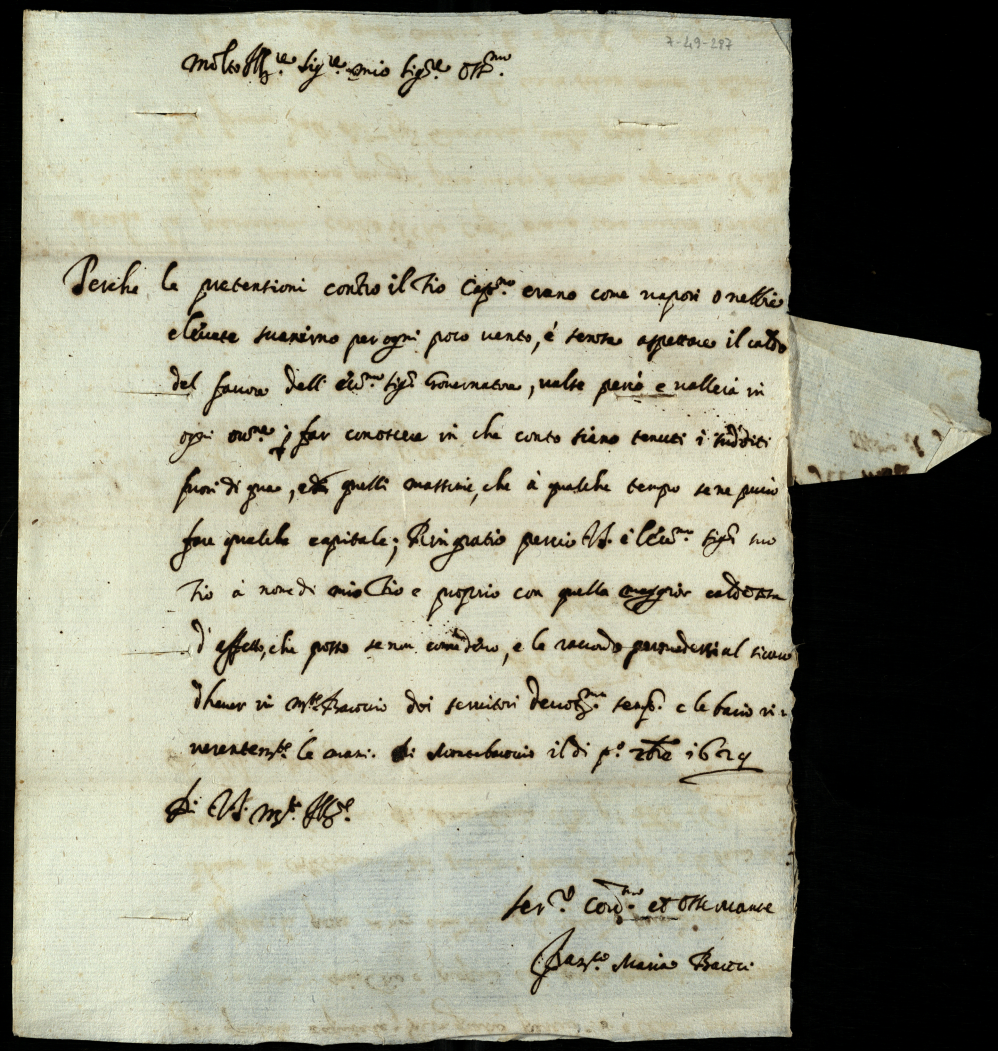 7-49-297
Molto Ill.re Sig.re mio Sig.re Oss.mo
Perche le pretensioni contro il Tio Cap.no erano come vapori o nebbie
elevate svanirno per ogni poco vento, e senza aspettare il caldo
del favore dell' Ecc.mo Sig.r Governatore, valse però e vallerà in
ogni occ.ne p far conoscere in che conto sieno tenuti i sudditi
fuori di qua, e di quelli massime, che à qualche tempo se ne può
fare qualche capitale; Ringratio perciò V.S. e l'Ecc.mo Sig.r suo
Tio à nome di mio Tio e proprio con quella maggior caldezza
d' affetto, che posso se non come devo, e le ricordo persuadersi al sicuro
d'haver in Monte Baroccio dei servitori devot.mi sempre e le bacio ri-
verentem.te le mani. Di Montebaroccio il di p.o 7bre 1629
Di V.S. M.to Ill.re
Ser.re Cord.mo et Oss. mance
Fran.co Maria Bacci